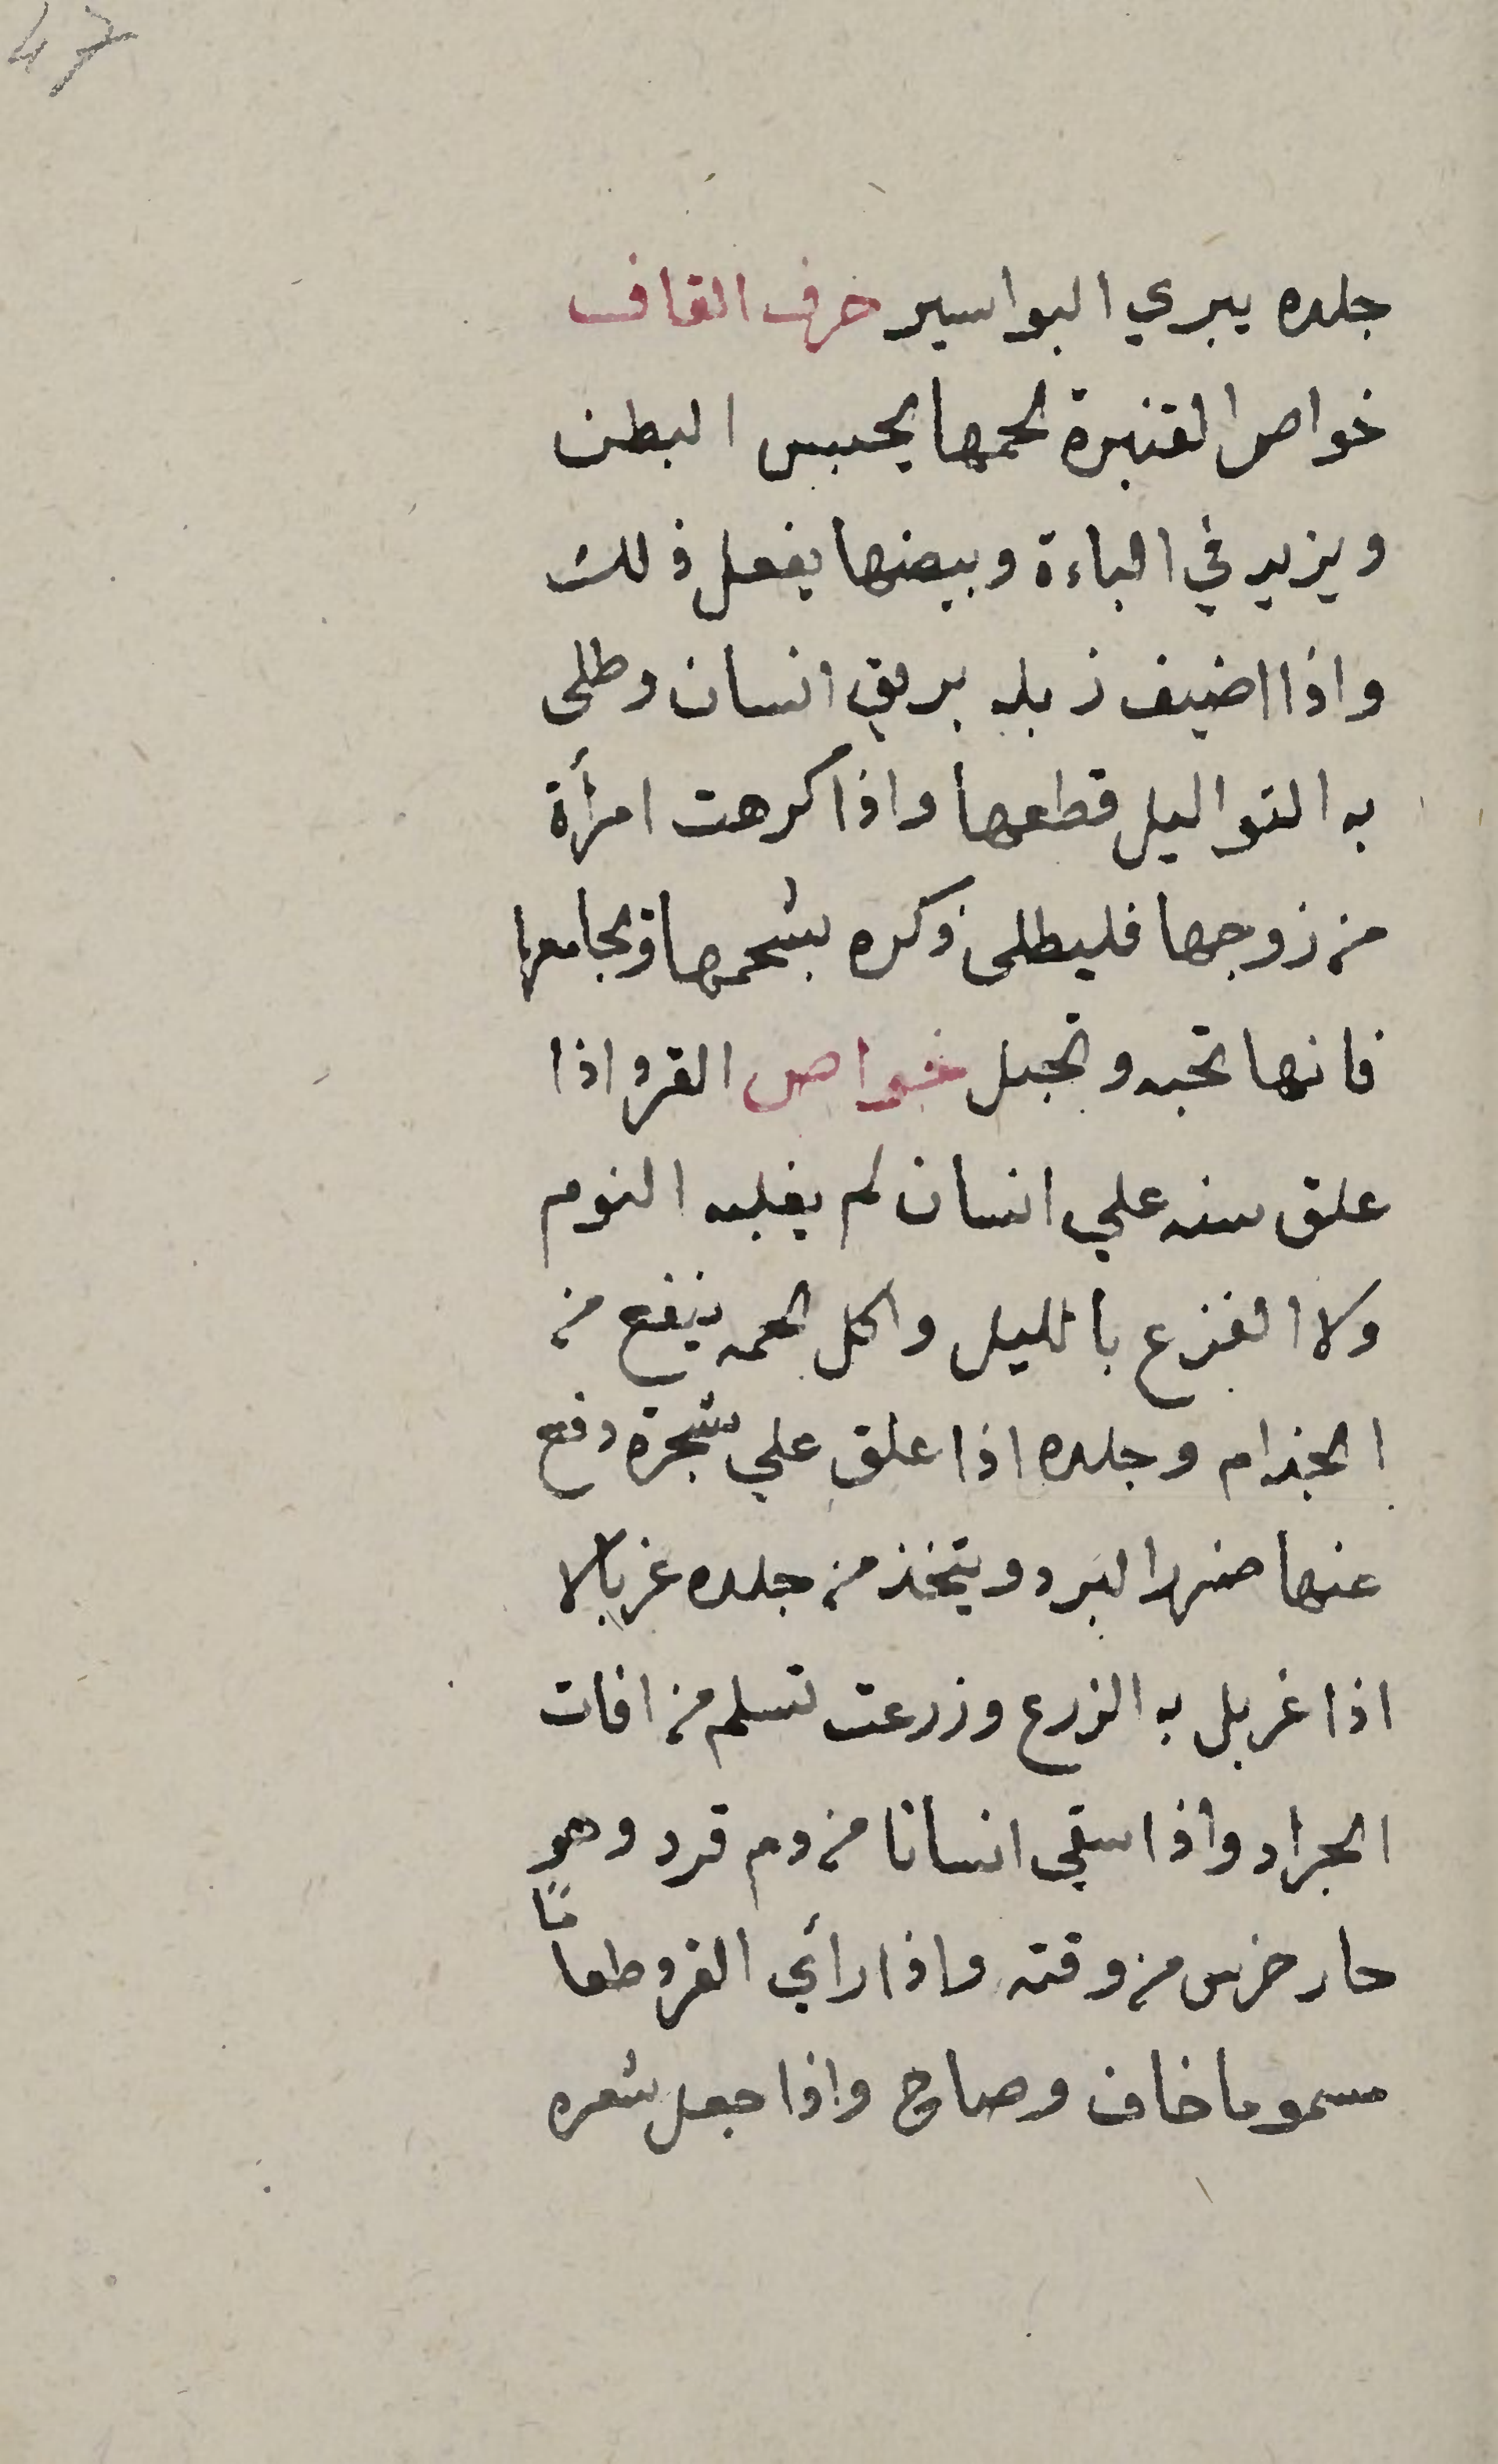 47
جلده يبري البواسير حرف القاف
خواص القنبرة لحمها يحبس البطن
ويزيد في الباءة وبيضها يفعل ذلك
واذا اضيف زبله بريق انسان وطلى
به التواليل قطعها واذا كرهت امرأة
من زوجها فليطلى ذكره بشحمها ويجامعها
فانها تحبه وتحبل خواص القرد اذا
علق سنه علي انسان لم يغلبه النوم
ولا الفزع بالليل واكل لحمه ينفع من
الجذام وجلده اذا علق علي شجرة دفع
عنها ضرر البرد ويتخذ من جلده غربالا
اذا غربل به الزرع وزرعت تسلم من افات
الجراد واذا سقي انسانا من دم قرد وهو
حار خرس من وقته واذا رأي القرد طعامًا
مسموما خاف وصاح واذا جعل شعره